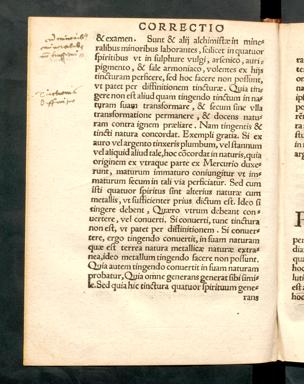 CORRECTIO
& examen. Sunt & alij alchimistæ in mine-
ralibus minoribus laborantes, scilicet in quatuor
spiritibus vt in sulphure vulgi, arsenico, auri-
pigmento, & sale armoniaco, volentes ex hijs
tincturam perficere, sed hoc facere non possunt,
vt patet per diffinitionem tincturæ. Quia tin-
gere non est aliud quam tingendo tinctum in na-
turam suam transformare, & secum sine vlla
transformatione permanere, & docens natu-
ram contra ignem præliari. Nam tingentis &
tincti natura concordat. Exempli gratia. Si ex
auro vel argento tinxeris plumbum, vel stannum
vel aliquid aliud tale, hoc cõcordat in naturis, quia
originem ex vtraque parte ex Mercurio duxe-
runt, maturum immaturo coniungitur vt im-
maturum secum in tali via perficiatur. Sed cum
isti quatuor spiritus sunt alterius naturæ cum
metallis, vt sufficienter prius dictum est. Ideo si
tingere debent, Quæro vtrum debeant con-
uertere, vel conuerti. Si conuerti, tunc tinctura
non est, vt patet per diffinitionem. Si conuer-
tere, ergo tingendo conuertit, in suam naturam
quæ est terrea natura metallicæ naturæ extra-
nea, ideo metallum tingendo facere non possunt.
Quia autem tingendo conuertit in suam naturam
probatur, Quia omne generans generat sibi simi-
le. Sed quia hic tinctura quatuor spirituum gene-
rans